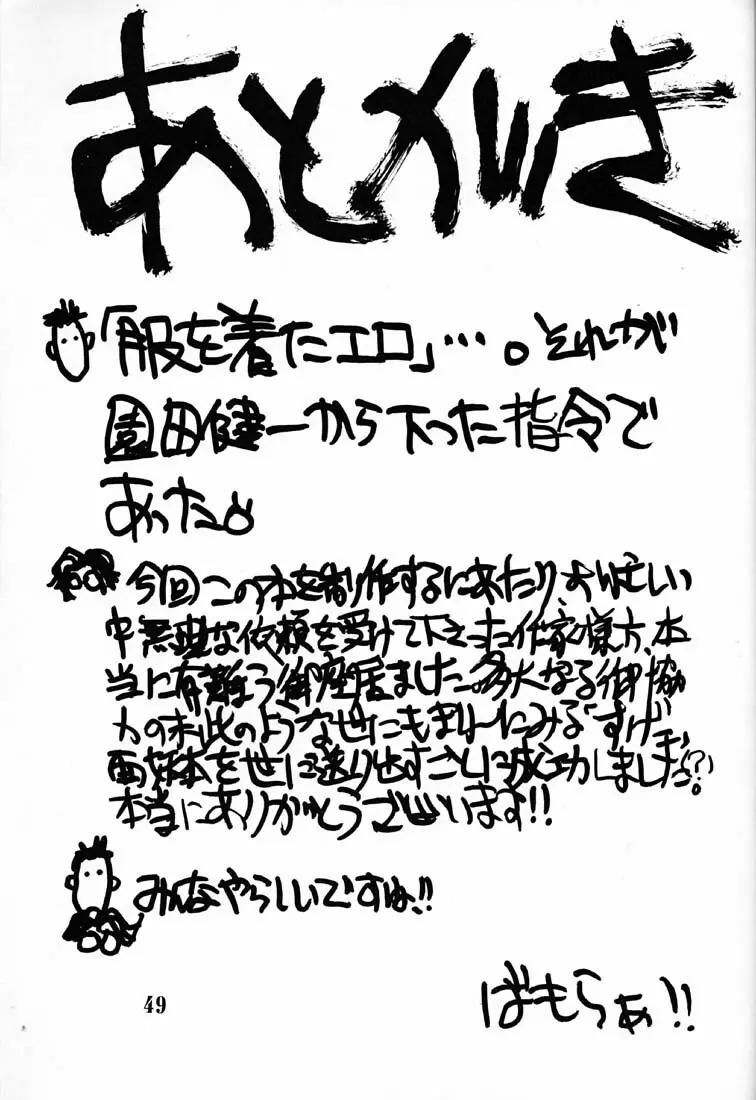 あとがき
「服を着たエロ」…。それが
園田健一から下った指令で
あった。
今回この本を制作するにあたり、お忙しい
中無理な依頼を受けて下さった作家様方、本
当に有難う御座居ました。多大なる御協
力の末、此のような世にもまれにみる「すげー」
面妖本を世に送り出すことに成功しました!?
本当にありがとうございます!!
みんなやらしいですね!!
ばもらぁ!!
49